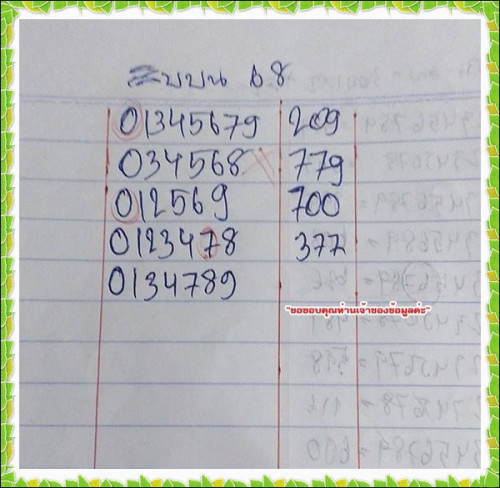 สิบบน ๖8
01345679 209
034568 779
012569 700
0123478 377
0134789
"ขอขอบคุณท่านเจ้าของข้อมูลค่ะ"